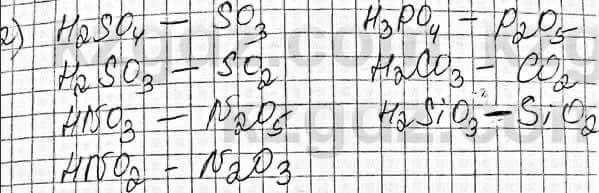 2) H₂SO₄ — SO₃ H₃PO₄ — P₂O₅
H₂SO₃ — SO₂ H₂CO₃ — CO₂
HNO₃ — N₂O₅ H₂SiO₃ — SiO₂
HNO₂ — N₂O₃